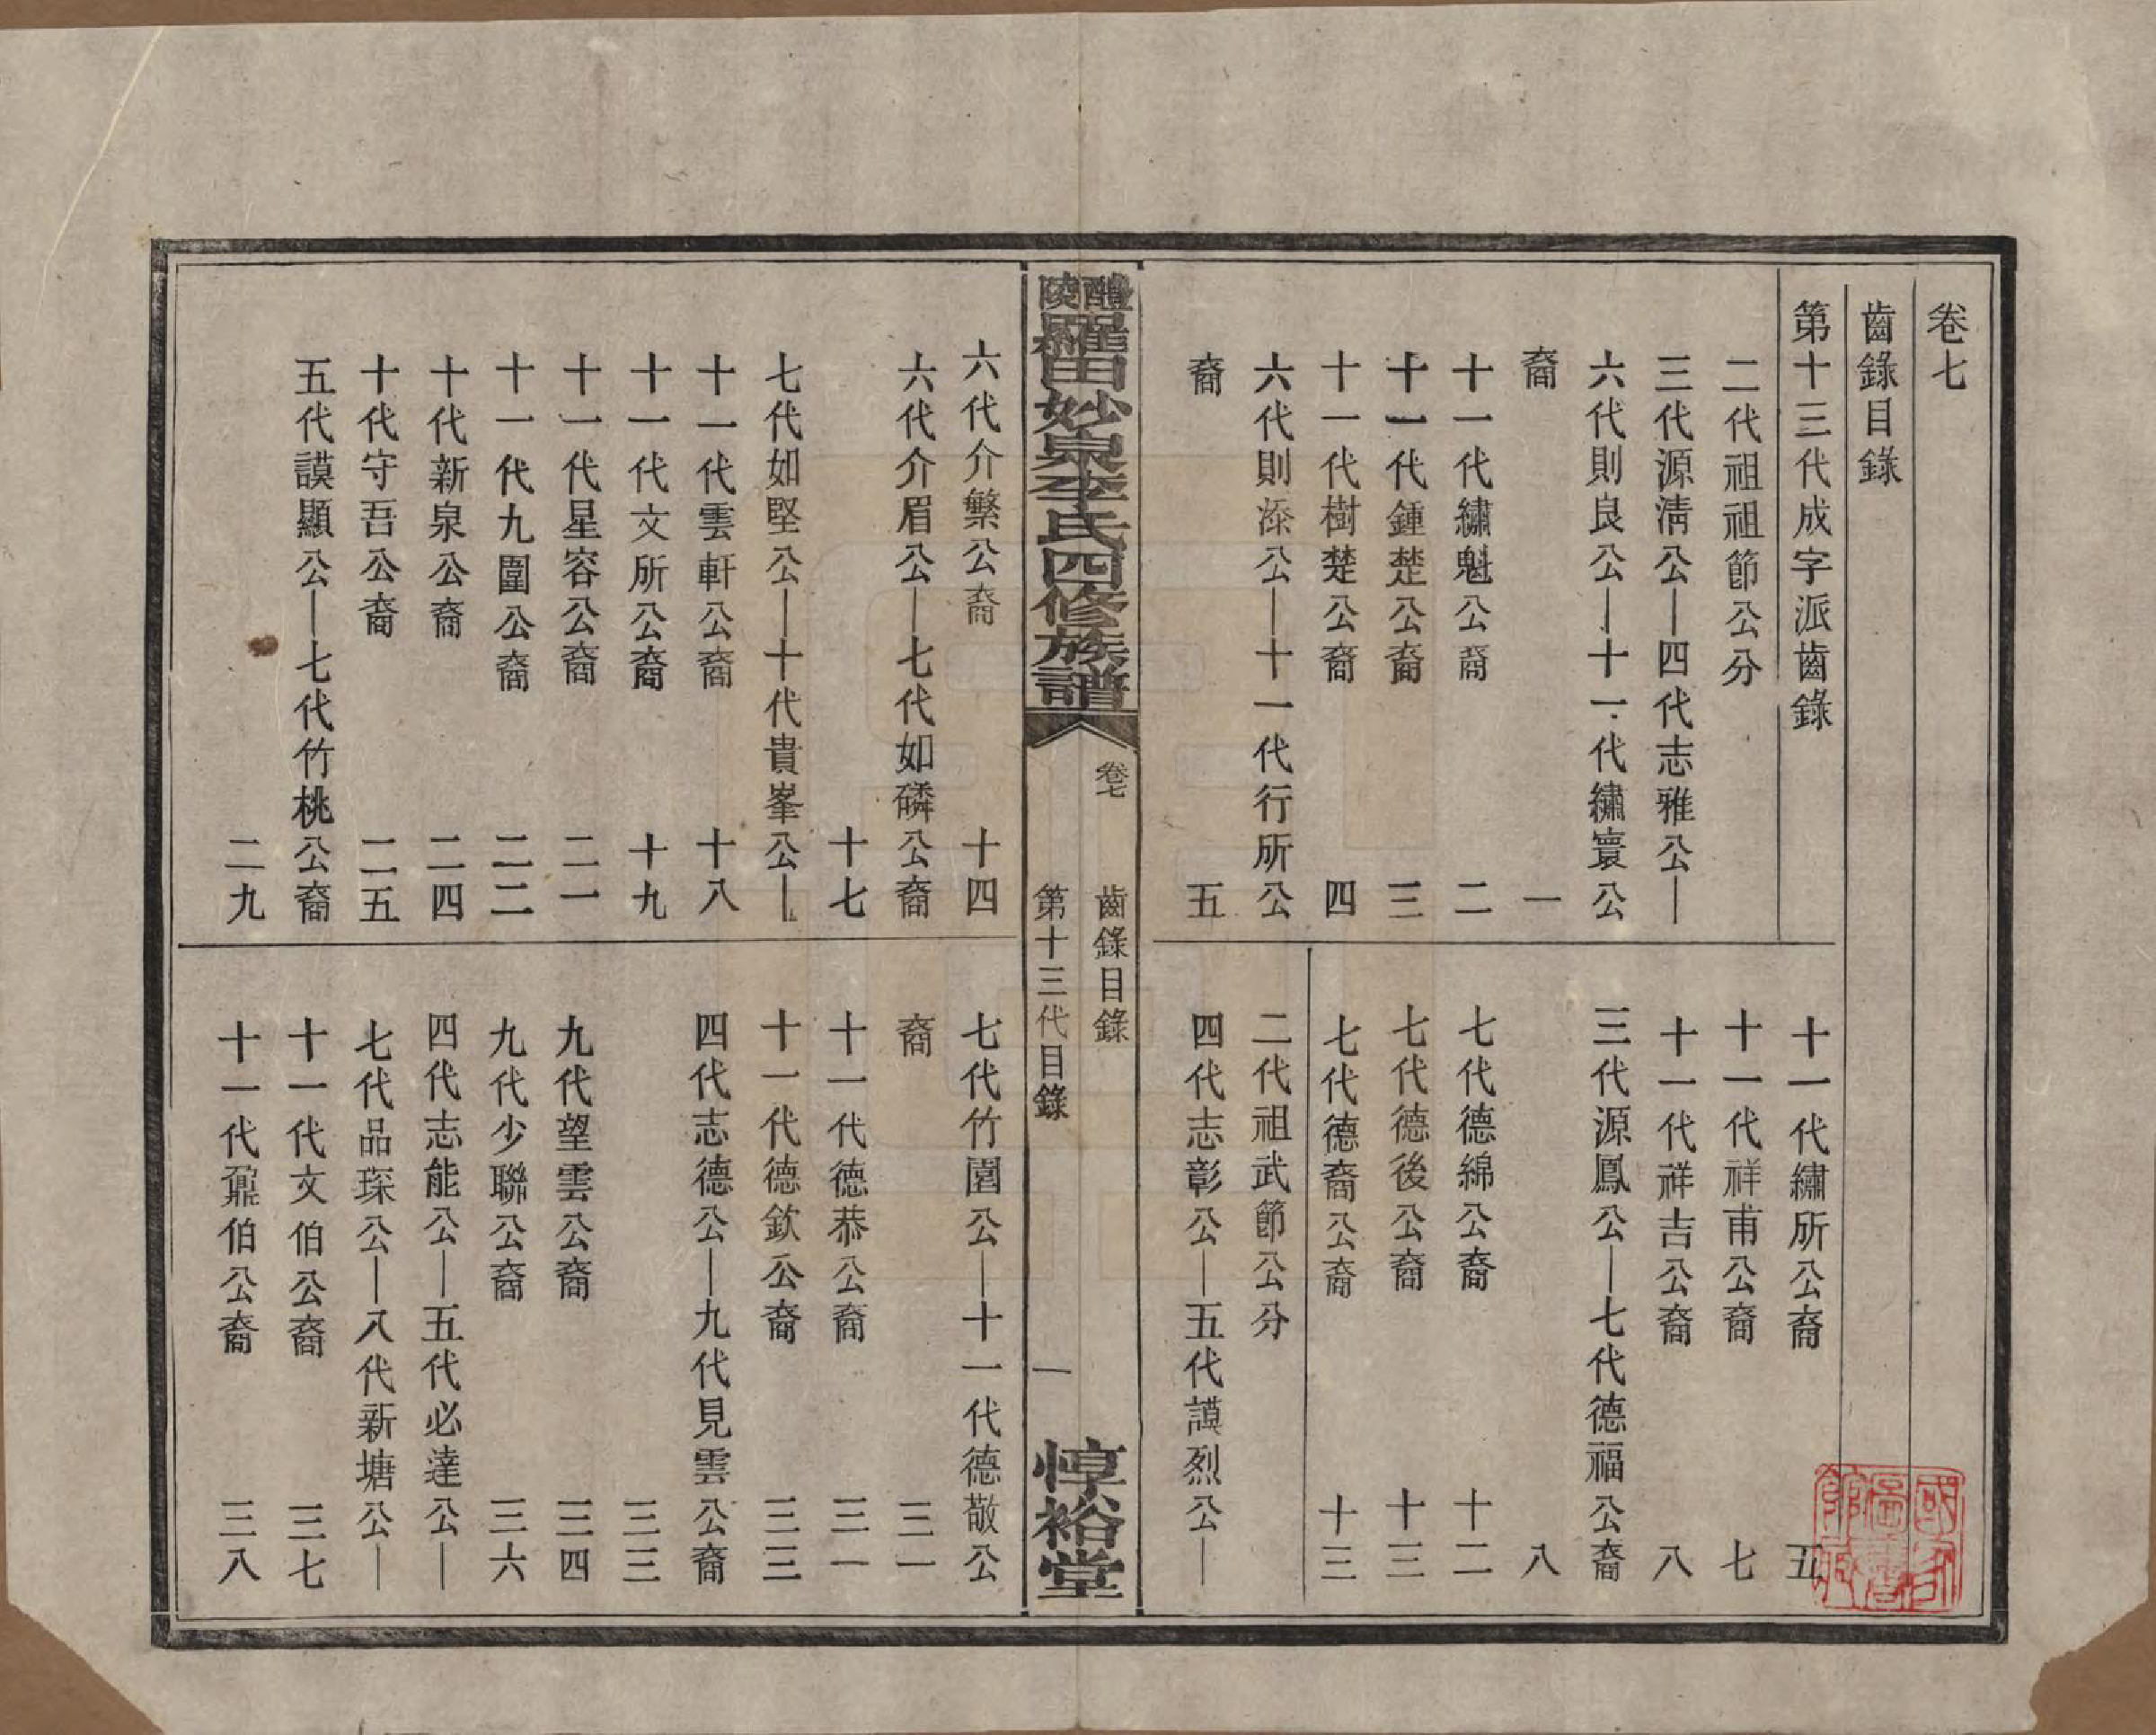 卷七
齒錄目錄
第十三代成字派齒錄
二代祖祖節公分
三代源清公—四代志雅公—
六代則良公—十一代繡寰公
裔 一
十一代繡魁公裔 二
十一代鍾楚公裔 三
十一代樹楚公裔 四
六代則添公—十一代行所公
裔 五
十一代繡所公裔 五
十一代祥甫公裔 七
十一代祥吉公裔 八
三代源鳳公—七代德福公裔
八
七代德綿公裔 十二
七代德後公裔 十三
七代德裔公裔 十三
二代祖武節公分
四代志彰公—五代謨烈公—
醴陵羅田妙泉李氏四修族譜
卷七 齒錄目錄
第十三代目錄 一
惇裕堂
六代介繁公裔 十四
六代介眉公—七代如磷公裔
十七
七代如堅公—十代貴峯公—
十一代雲軒公裔 十八
十一代文所公裔 十九
十一代星容公裔 二一
十一代九圍公裔 二二
十代新泉公裔 二四
十代守吾公裔 二五
五代謨顯公—七代竹桃公裔
二九
七代竹園公—十一代德敬公
裔 三一
十一代德恭公裔 三一
十一代德欽公裔 三三
四代志德公—九代見雲公裔
三三
九代望雲公裔 三四
九代少聯公裔 三六
四代志能公—五代必達公—
七代品琛公—八代新塘公—
十一代文伯公裔 三七
十一代鼐伯公裔 三八